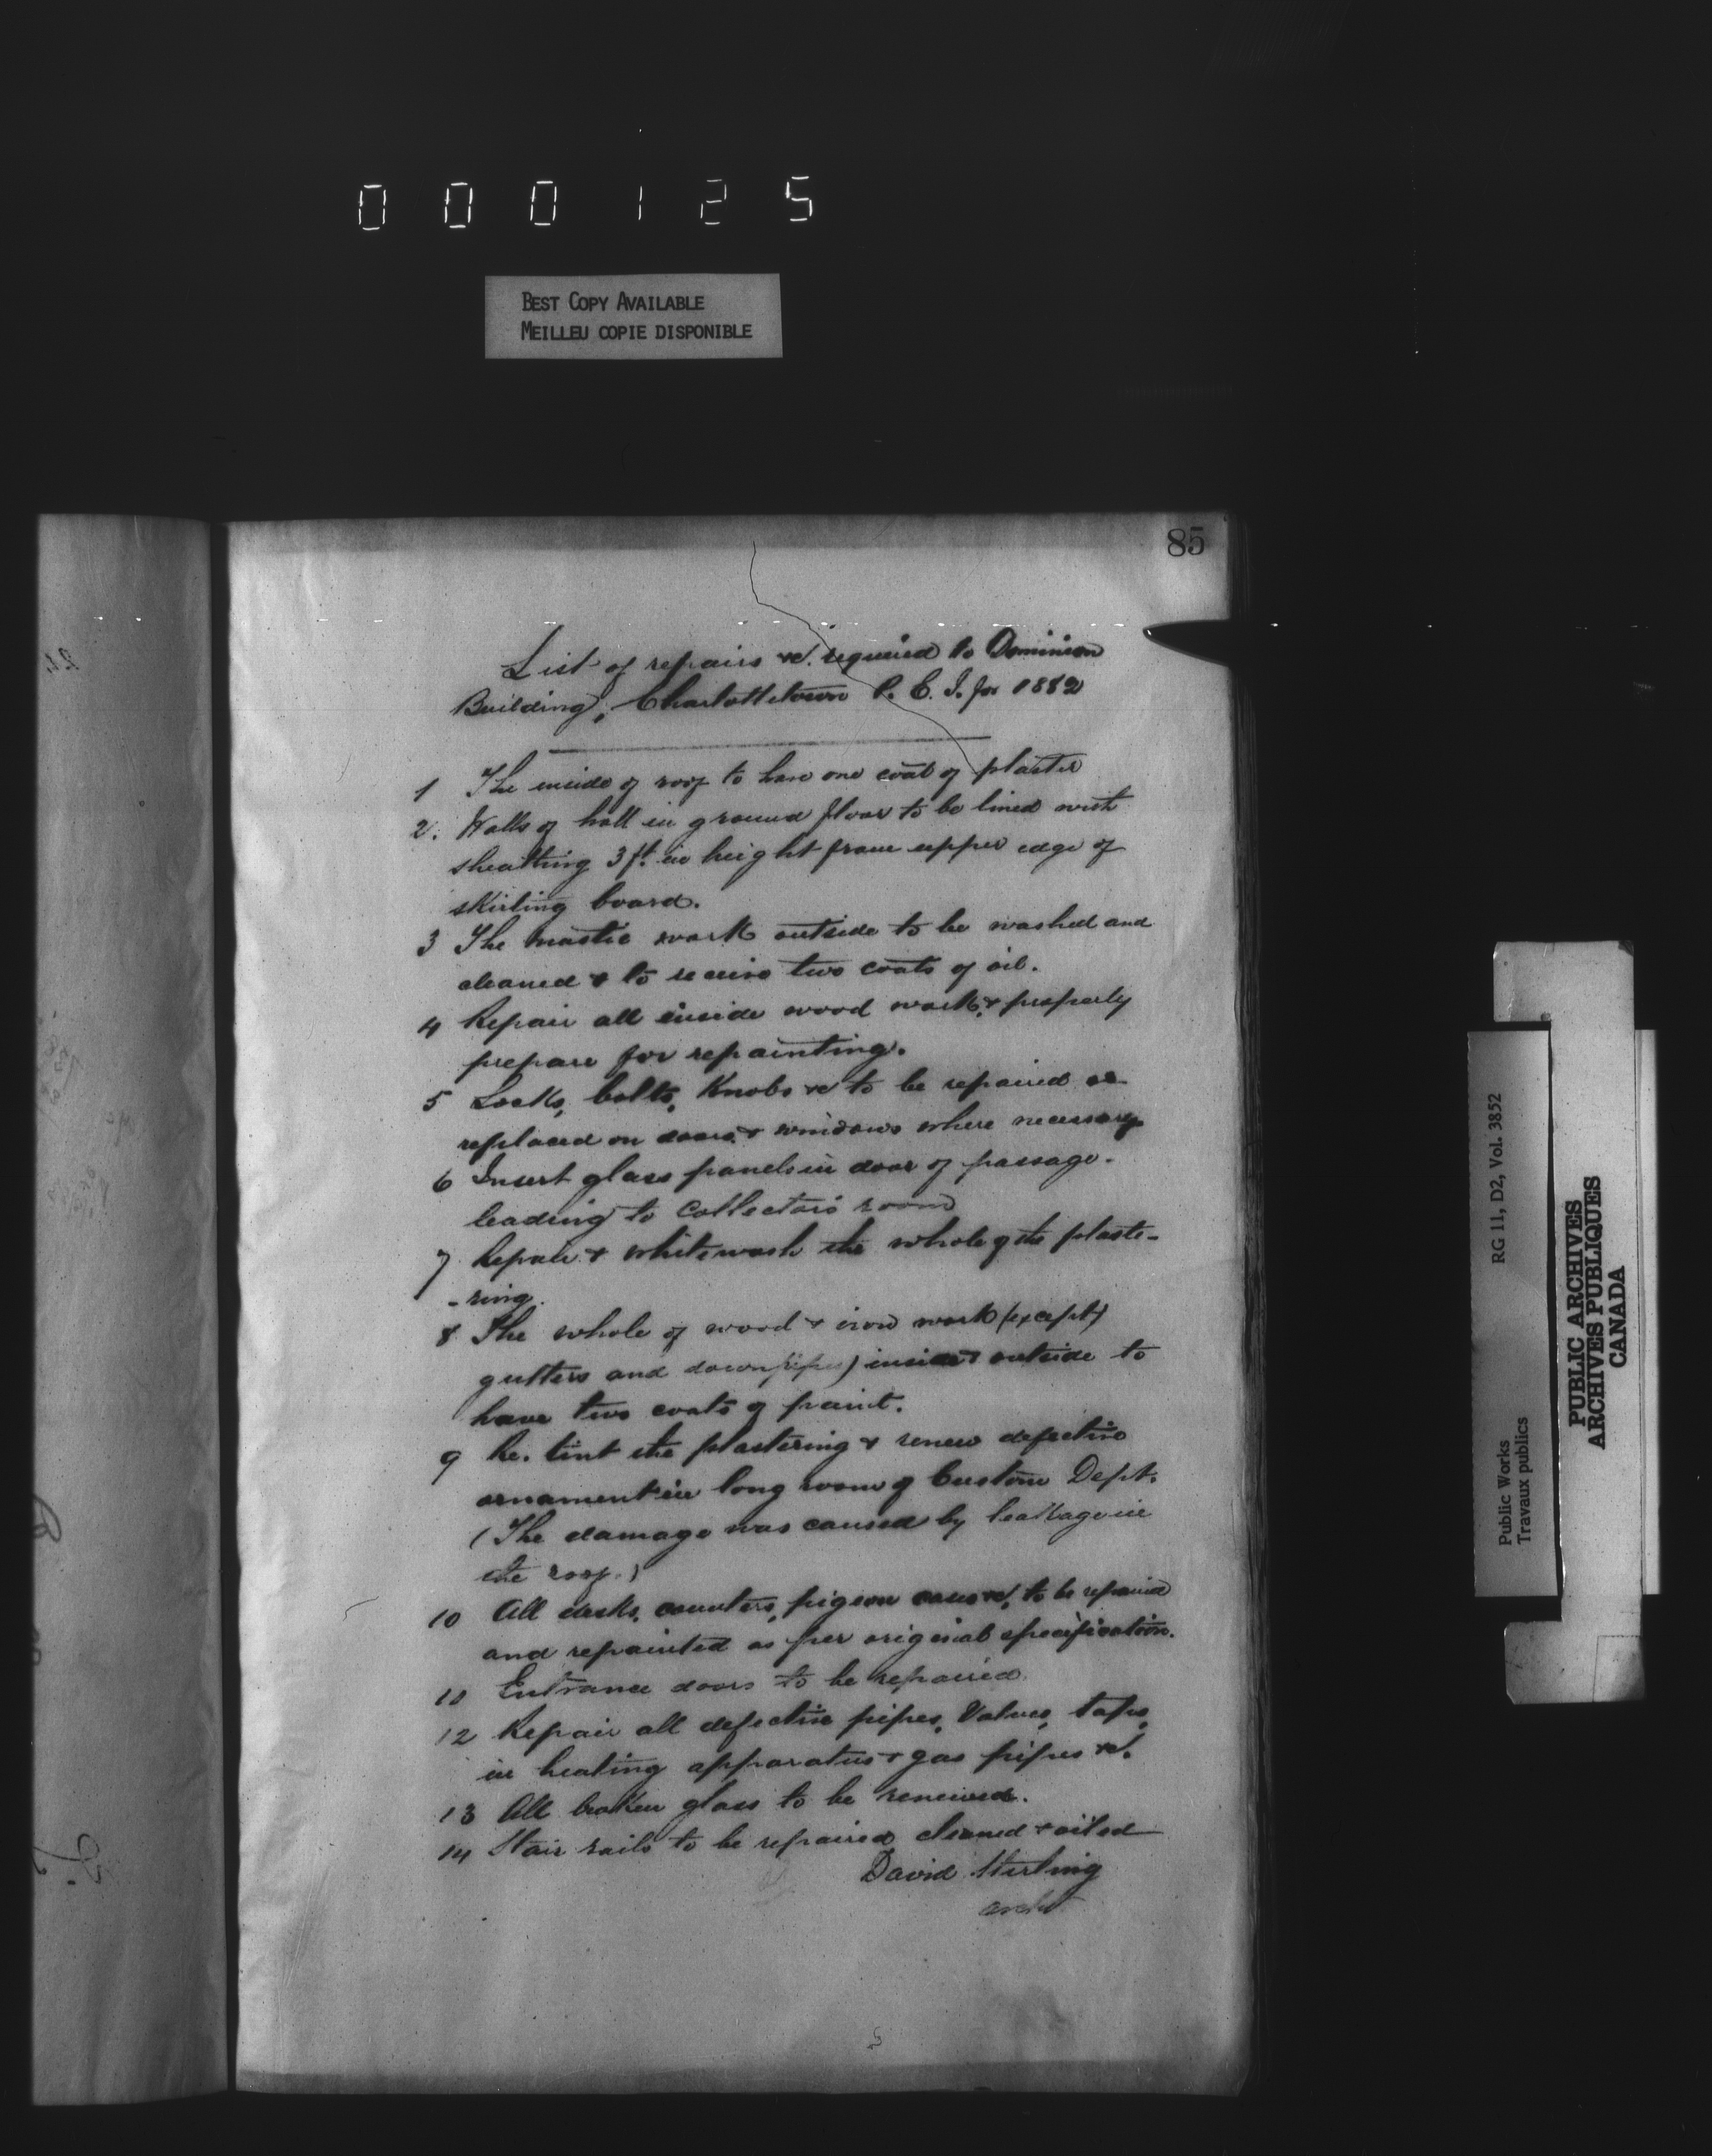 000125
BEST COPY AVAILABLE
MEILLEU COPIE DISPONIBLE
85
List of repairs &c. required to Dominion
Building, Charlottetown P. E. I. for 1882
1 The inside of roof to have one coat of plaster
2. Walls of hall in ground floor to be lined with
sheathing 3 ft. in height from upper edge of
skirting board.
3 The mastic work outside to be washed and
cleaned & to receive two coats of oil.
4 Repair all inside wood work, & properly
prepare for repainting.
5 Locks, bolts, Knobs &c to be repaired or
replaced on doors & windows where necessary
6 Insert glass panels in door of passage
leading to Collectors room
7 Repair & whitewash the whole of the plaste-
-ring.
8 The whole of wood & iron work (except
gutters and downpipes) inside & outside to
have two coats of paint.
9 Re. tint the plastering & renew defective
ornament in long room of Custom Dept.
(The damage was caused by leakage in
the roof.)
10 All desks, counters, pigeon cases &c. to be repaired
and repainted as per original specification.
11 Entrance doors to be repaired
12 Repair all defective pipes, Valves, taps,
in heating apparatus & gas pipes &c.
13 All broken glass to be renewed.
14 Stair rails to be repaired cleaned & oiled
David Stirling
archt
RG 11, D2, Vol. 3852
Public Works
Travaux publics
PUBLIC ARCHIVES
ARCHIVES PUBLIQUES
CANADA